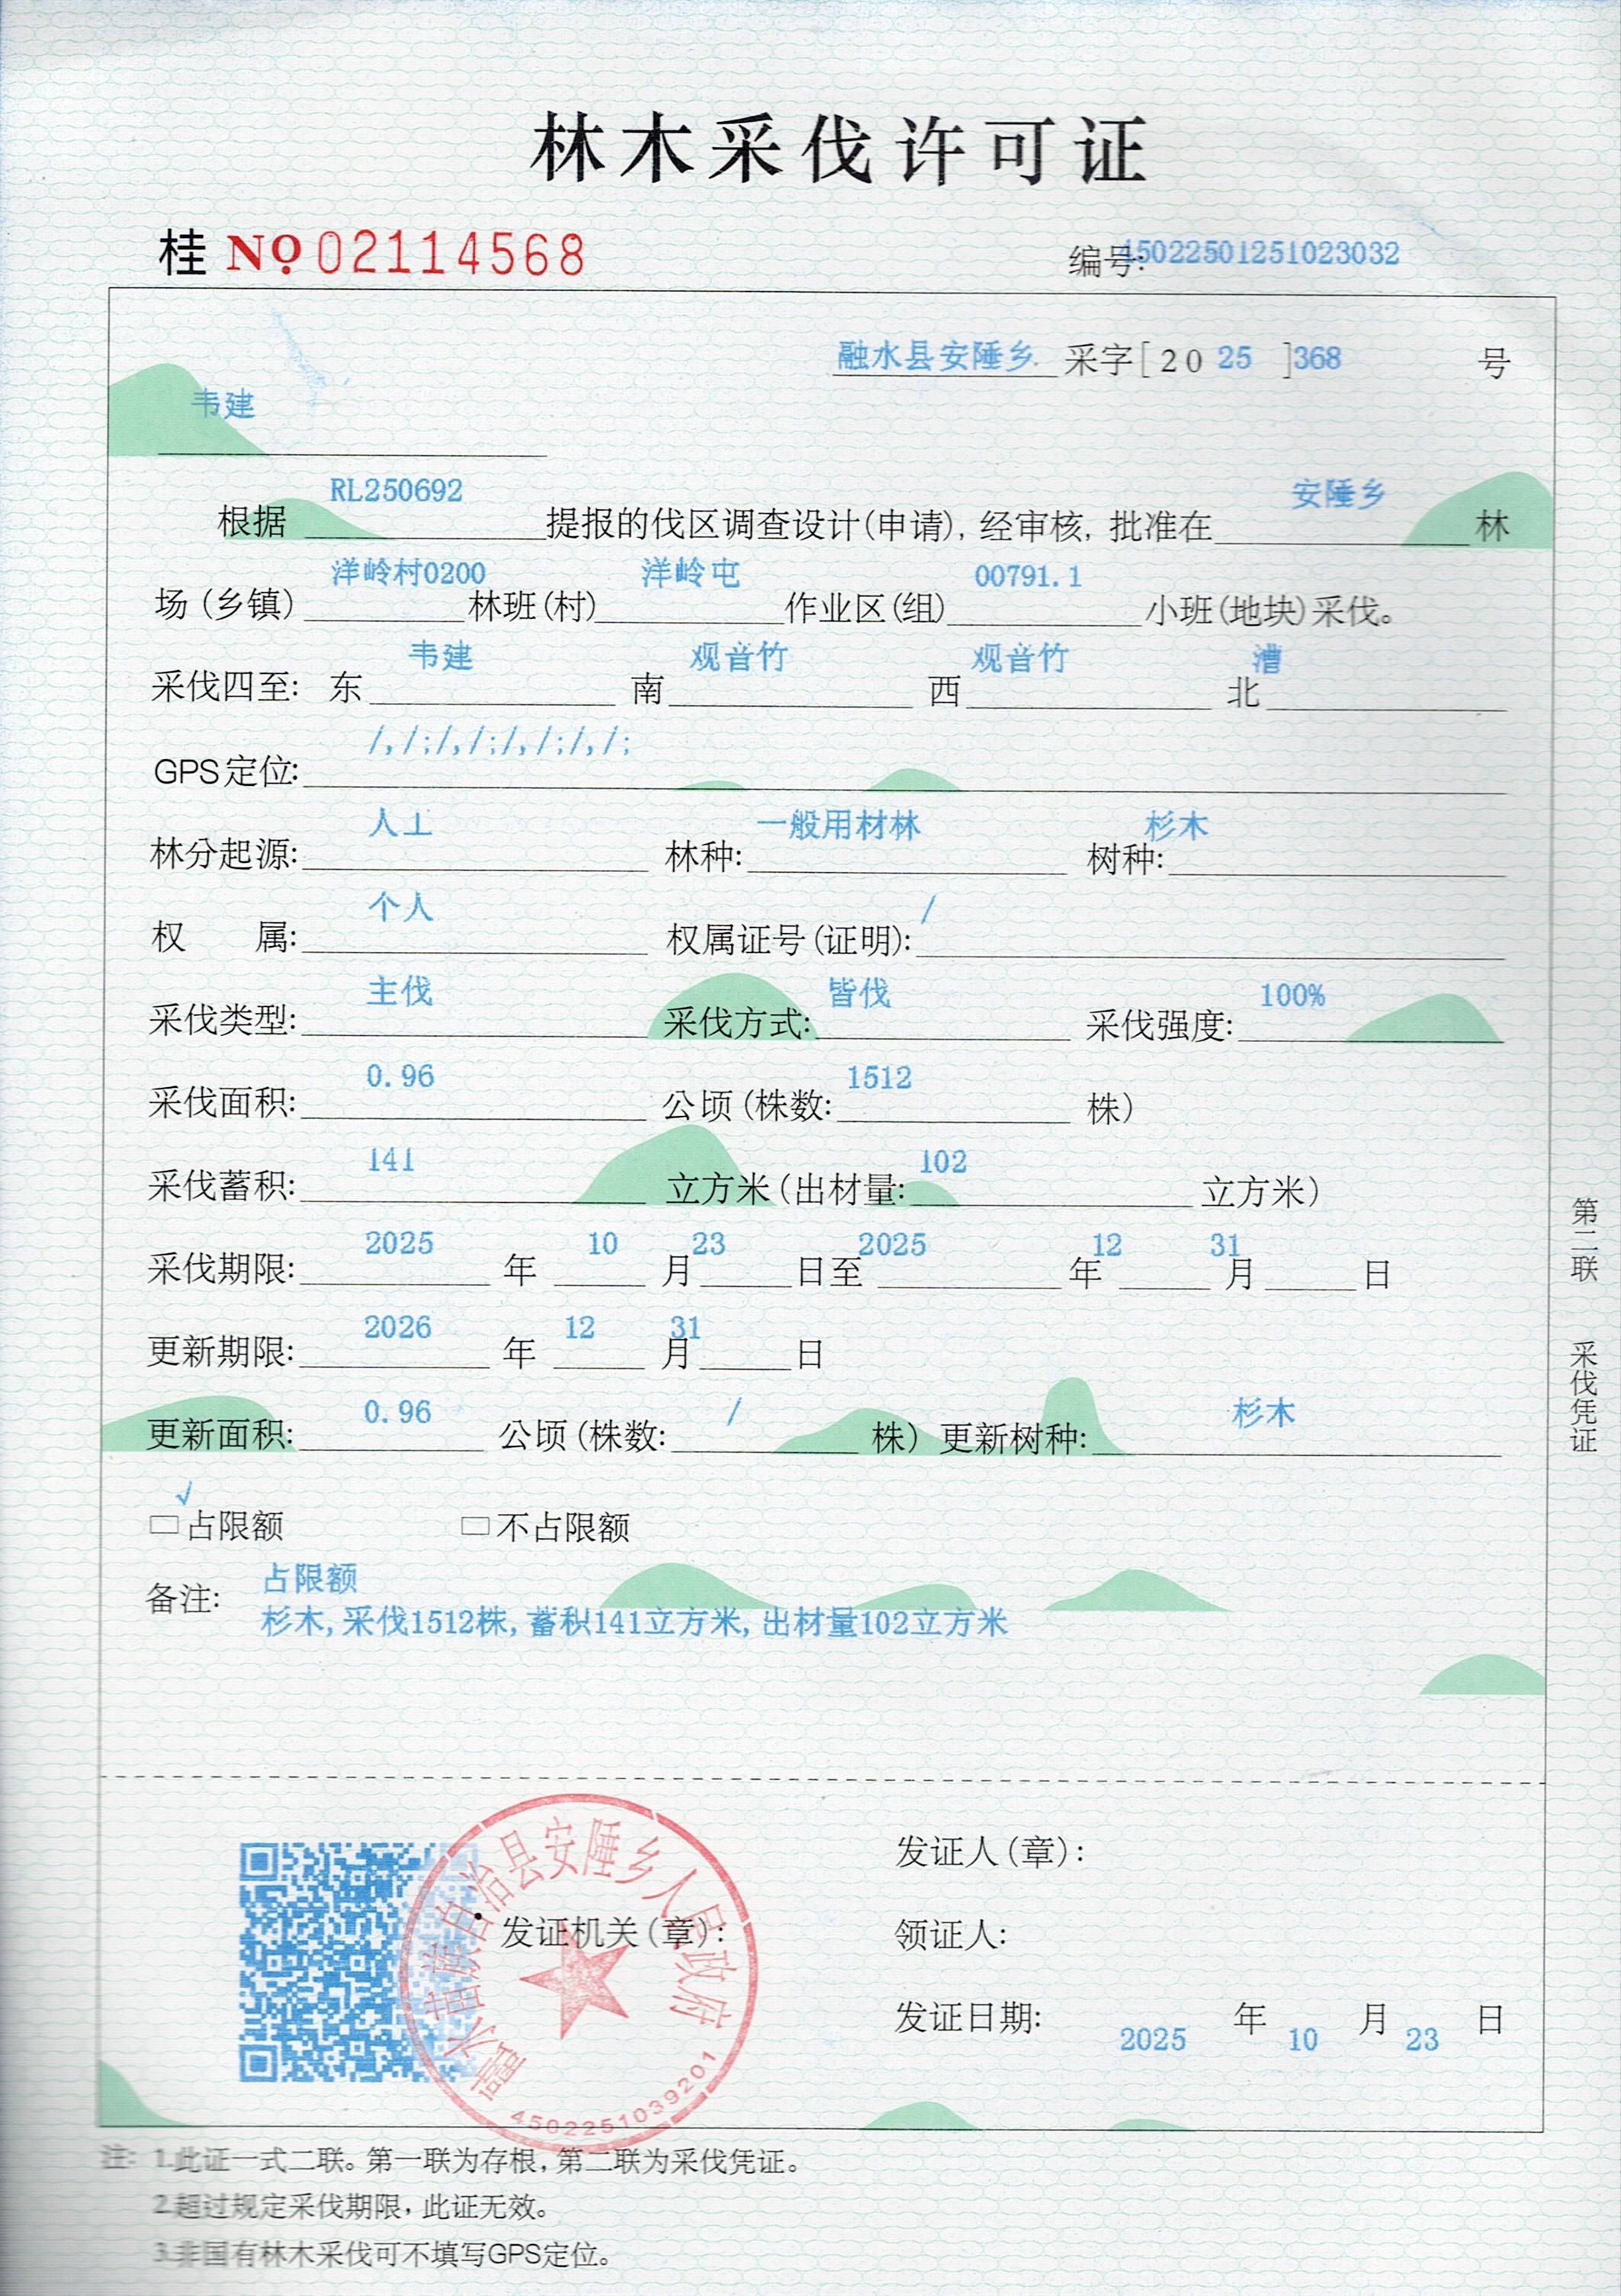 林木采伐许可证
桂 NO 02114568
编号:45022501251023032
融水县安陲乡 采字[2025]368 号
韦建
根据 RL250692 提报的伐区调查设计(申请), 经审核, 批准在 安陲乡 林
场(乡镇) 洋岭村0200 林班(村) 洋岭屯 作业区(组) 00791.1 小班(地块)采伐。
采伐四至: 东 韦建 南 观音竹 西 观音竹 北 漕
GPS定位: /,/;/,/;/,/;/,/;
林分起源: 人工 林种: 一般用材林 树种: 杉木
权 属: 个人 权属证号(证明): /
采伐类型: 主伐 采伐方式: 皆伐 采伐强度: 100%
采伐面积: 0.96 公顷(株数: 1512 株)
采伐蓄积: 141 立方米(出材量: 102 立方米)
采伐期限: 2025 年 10 月 23 日至 2025 年 12 月 31 日
更新期限: 2026 年 12 月 31 日
更新面积: 0.96 公顷(株数: / 株) 更新树种: 杉木
√
□占限额 □不占限额
备注: 占限额
杉木, 采伐1512株, 蓄积141立方米, 出材量102立方米
发证机关(章):
融水苗族自治县安陲乡人民政府
4502251039201
发证人(章):
领证人:
发证日期: 2025 年 10 月 23 日
注: 1.此证一式二联。第一联为存根, 第二联为采伐凭证。
2.超过规定采伐期限, 此证无效。
3.非国有林木采伐可不填写GPS定位。
第二联 采伐凭证